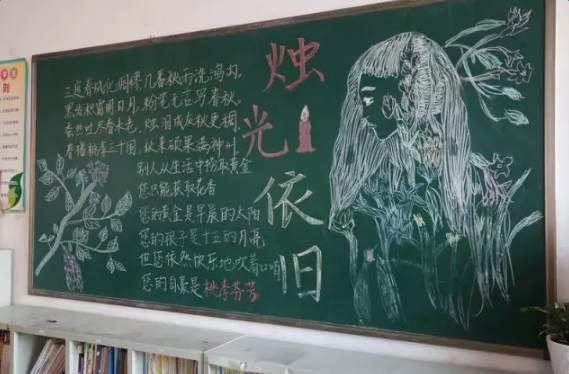 烛光依旧
三度春风化绸缪几番秋雨洗鸿沟。
黑发积霜日月,粉笔无言写春秋。
蚕丝吐尽春未老,烛泪成灰秋更稠。
春播桃李三千圃,秋来硕果满神州
别人从生活中捞取黄金
您只能获取花香
您的黄金是早晨的太阳
您的银子是十五的月亮
但您依然快乐地吹着口哨
您的自豪是桃李芬芳
则